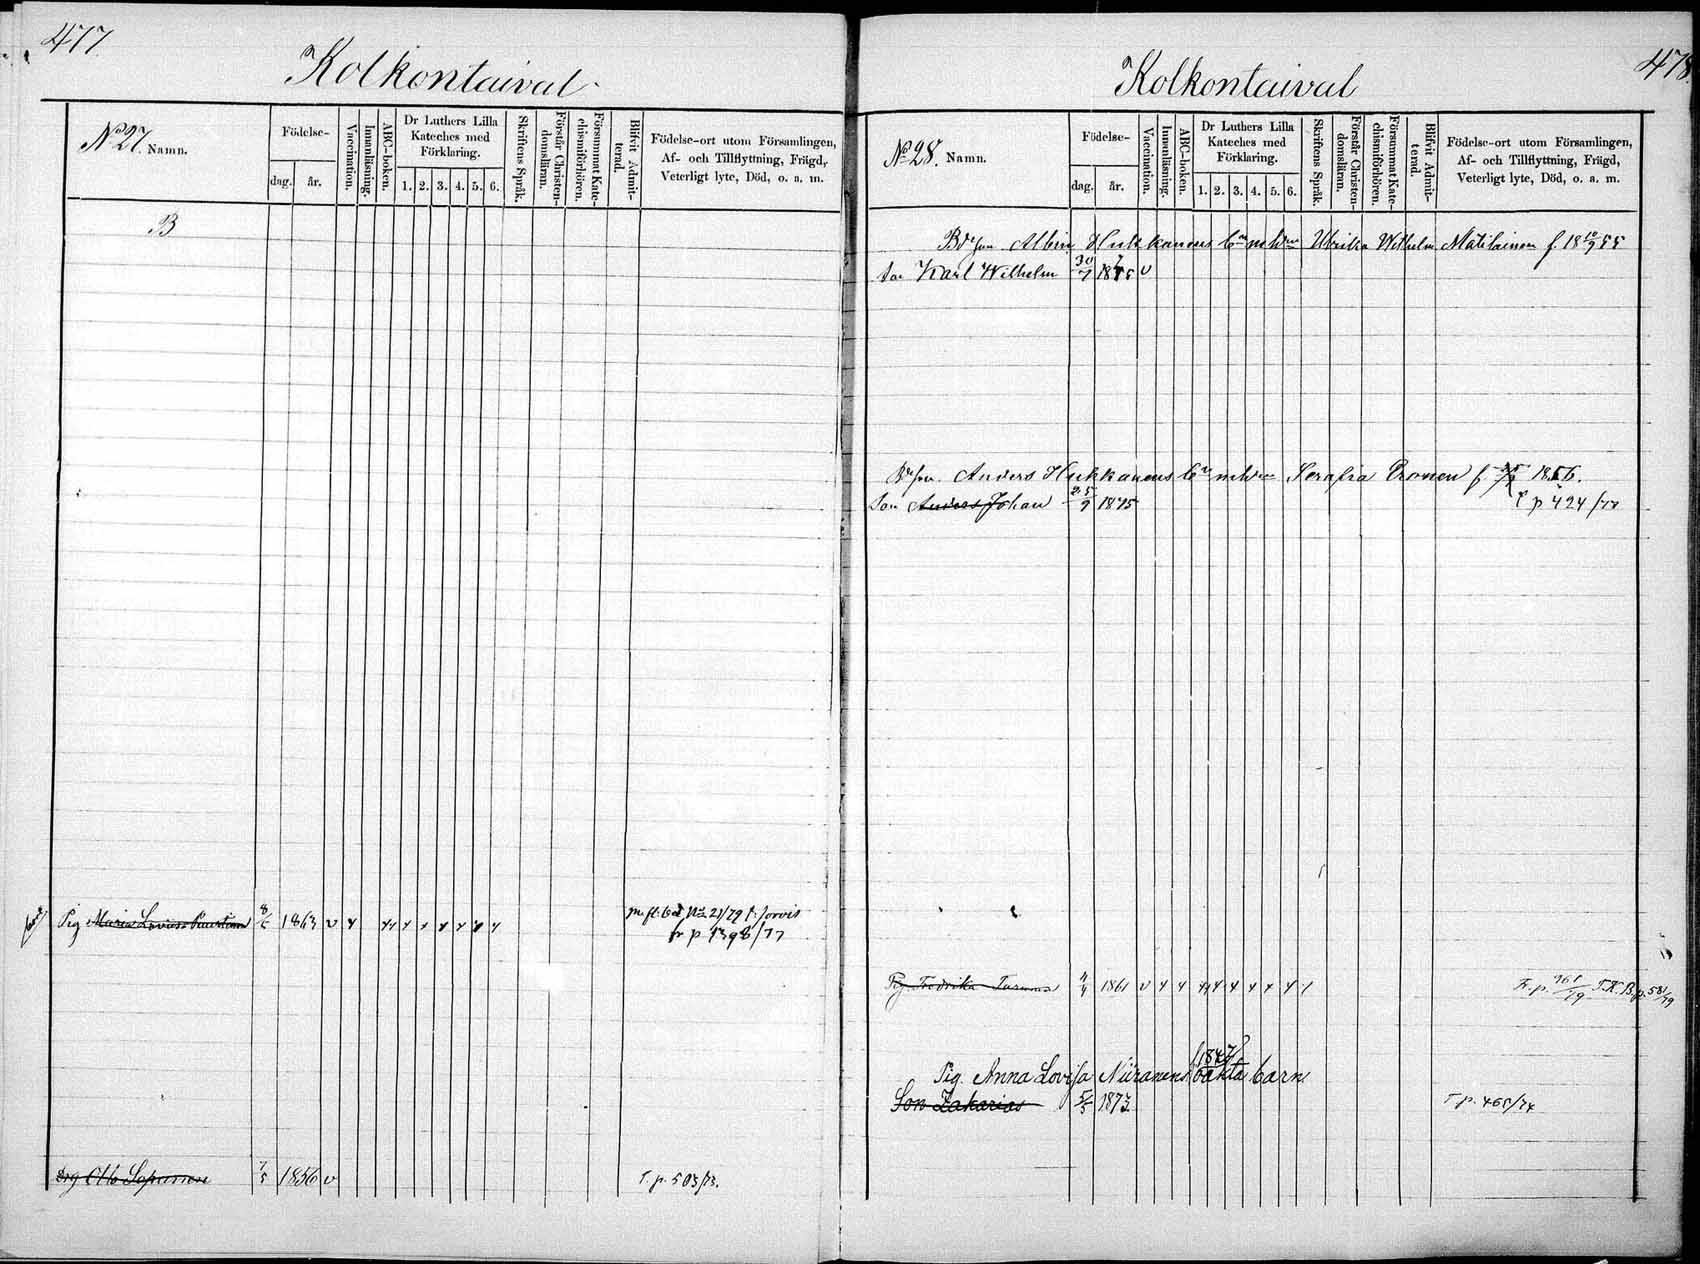 477.
Kolkontaival
No 27. Namn.
Födelse-
dag. år.
Vaccination.
Innanläsning.
ABC-boken.
Dr Luthers Lilla Kateches med Förklaring.
1. 2. 3. 4. 5. 6.
Skriftens Språk.
Förstår Christen-domsläran.
Försummat Kate-chismiförhören.
Blifvit Admit-terad.
Födelse-ort utom Församlingen,
Af- och Tillflyttning, Frägd,
Veterligt lyte, Död, o. a. m.
B
Pig Maria Lovisa 8/6 1863 v
fr p 1398/77
Drg Otto Soparinen 7/5 1856 v T. p. 503/73.
478.
Kolkontaival
No 28. Namn.
Födelse-
dag. år.
Vaccination.
Innanläsning.
ABC-boken.
Dr Luthers Lilla Kateches med Förklaring.
1. 2. 3. 4. 5. 6.
Skriftens Språk.
Förstår Christen-domsläran.
Försummat Kate-chismiförhören.
Blifvit Admit-terad.
Födelse-ort utom Församlingen,
Af- och Tillflyttning, Frägd,
Veterligt lyte, Död, o. a. m.
Albin Hukkanens Ulrika Wilhelm. Matilainen f. 18 10/9 55
Son Karl Wilhelm 30/7 1875 v
Anders Hukkanens Serafia Pronen f 1856.
Son Anders Johan 25/9 1875 p 424/77
Pig Fredrika 4/4 1861 v F. p. 961/79 T.K.B. p. 581/79
1847
Pig. Anna Lovisa Niiranens oäkta barn
Son Zakarias 5/5 1873. T. p. 465/74